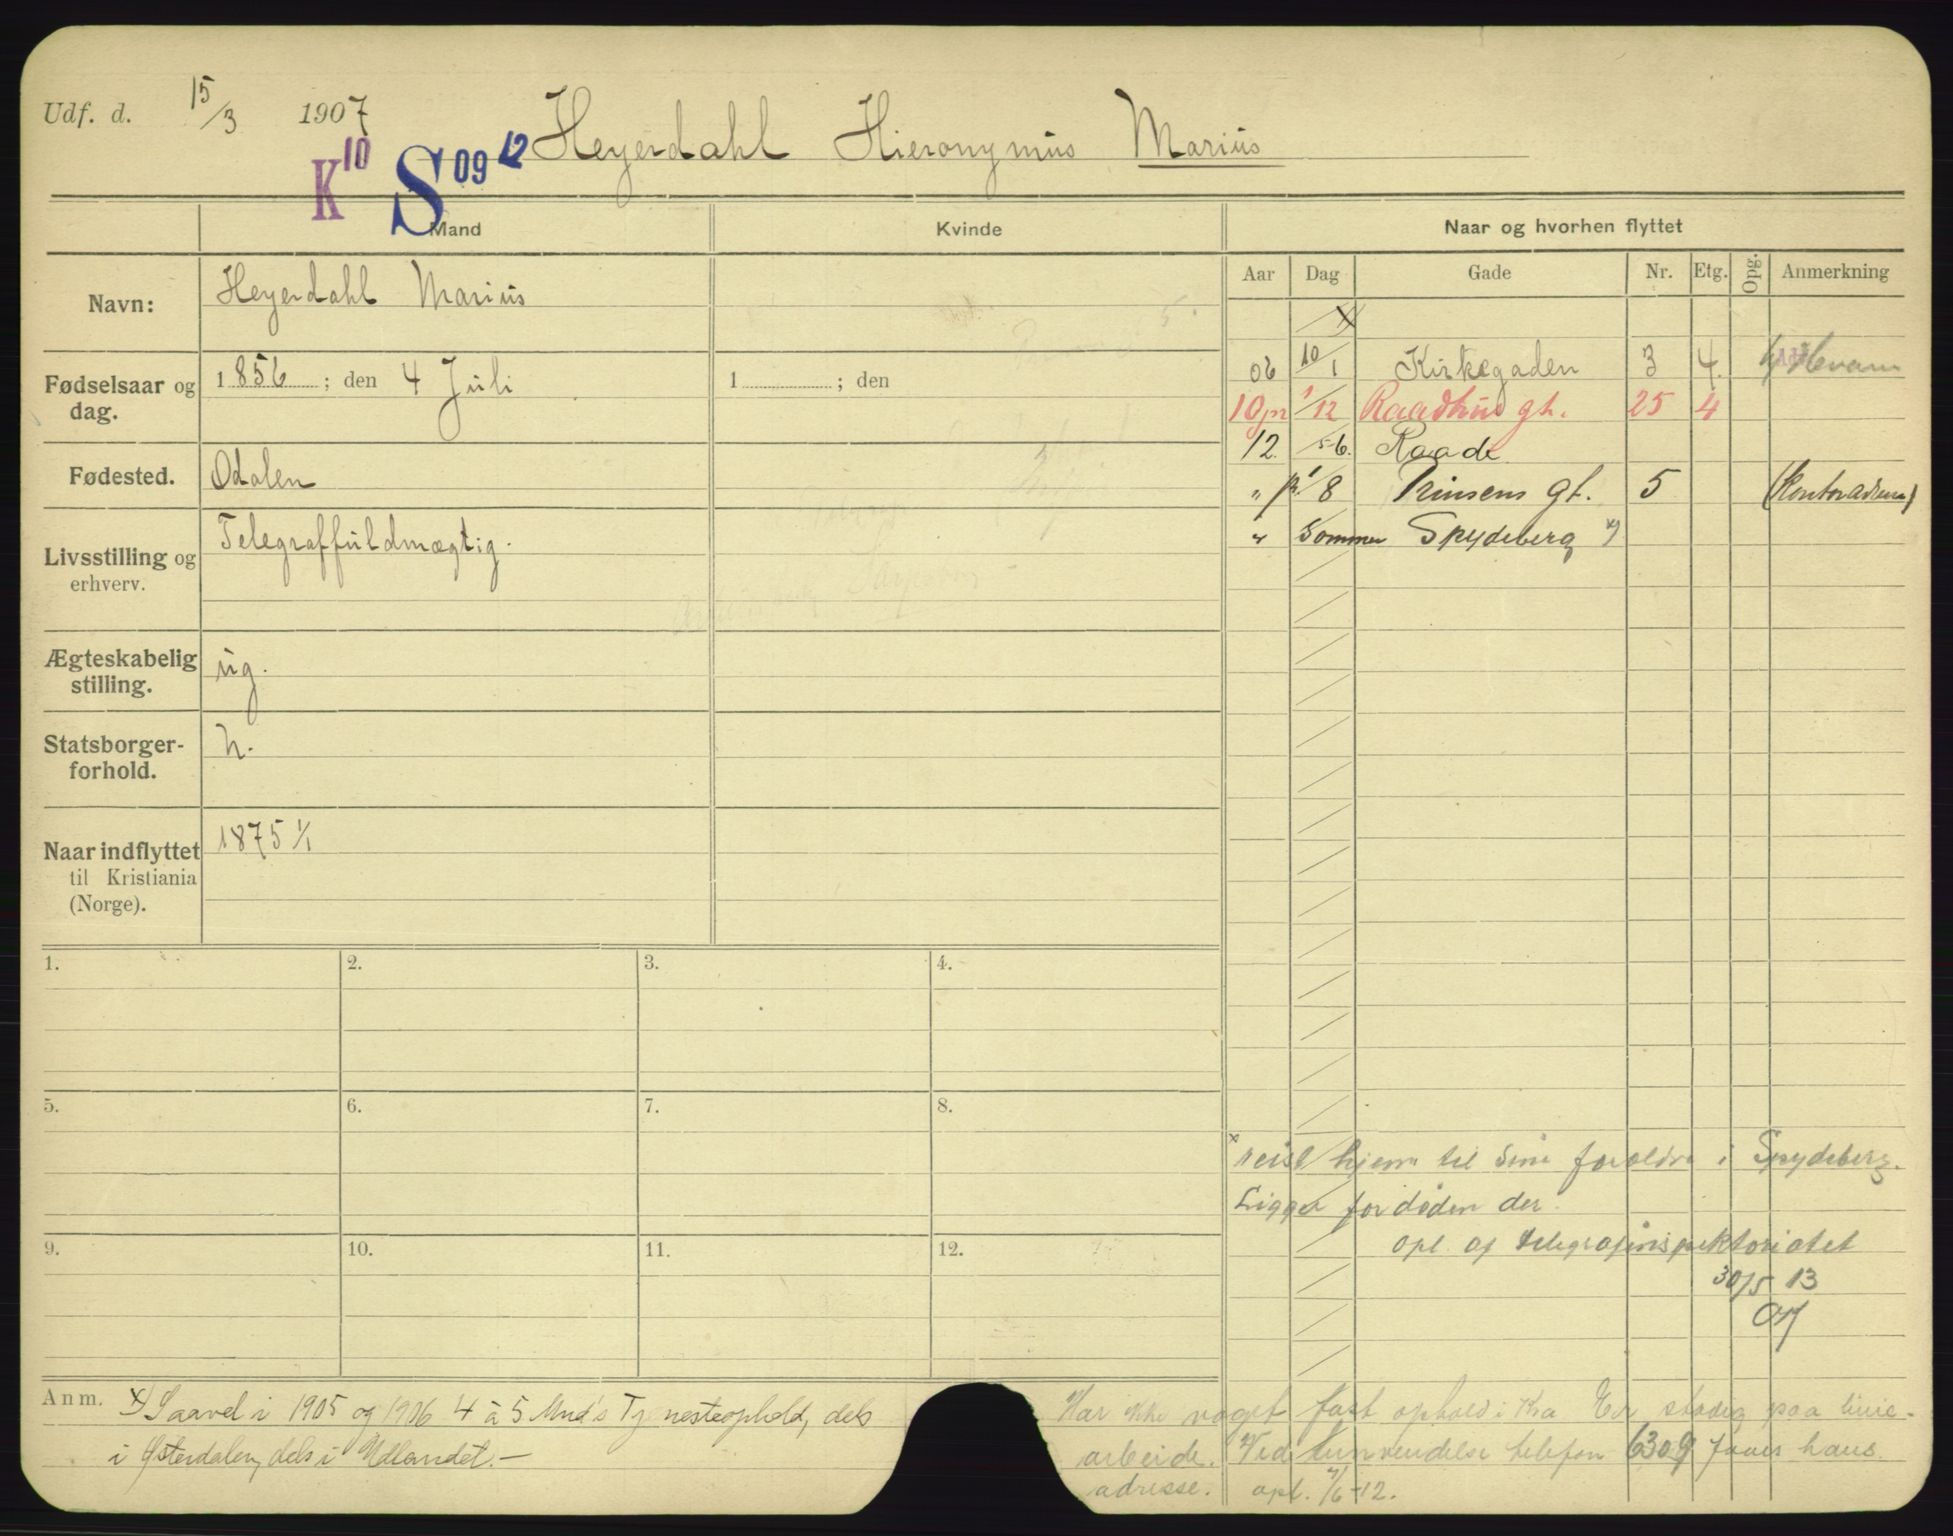 Udf. d. 15/3 1907
Heyerdahl Hieronymus Marius
K 10 S 09 12
Mand
Kvinde
Naar og hvorhen flyttet
Navn: Heyerdahl Marius
Fødselsaar og dag. 1856; den 4 Juli
1 ; den
Fødested. Odalen
Livsstilling og erhverv. Telegraffuldmægtig.
Ægteskabelig stilling. ug.
Statsborgerforhold. n.
Naar indflyttet til Kristiania (Norge). 1875 1/1
Aar Dag Gade Nr. Etg. Opg. Anmerkning
x
06 10/1 Kirkegaden 3 4.
10 pr 1/12 Raadhus gt. 25 4
12. 5/6. Raade
" pr. 1/8 Prinsens gt. 5 (Kontoradresse)
" Sommer Spydeberg x)
1.
2.
3.
4.
5.
6.
7.
8.
9.
10.
11.
12.
x reist hjem til sine forældre i Spydeberg.
Ligger for døden der.
opl. af telegrafinspektoriatet
30/5 13
Anm. x) Saavel i 1905 og 1906 4 à 5 Mnd's Tjenesteophold, dels
i Østerdalen, dels i Udlandet. —
Har ikke noget fast ophold i Kra Er stadig paa linie-
arbeide. Ved henvendelse telefon 6309 faaes hans
adresse. opl. 7/6-12.